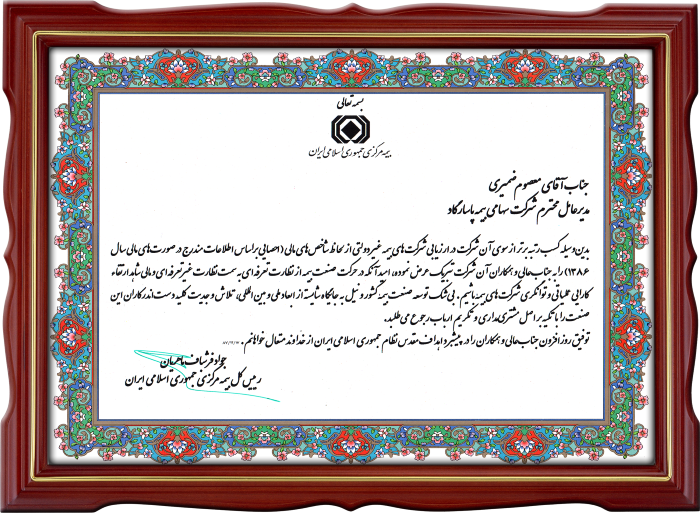 بسمه تعالی
بیمه مرکزی جمهوری اسلامی ایران
جناب آقای معصوم ضمیری
مدیرعامل محترم شرکت سهامی بیمه پاسارگاد
بدین وسیله کسب رتبه برتر از سوی آن شرکت در ارزیابی شرکت های بیمه غیردولتی از لحاظ شاخص های مالی (احصایی براساس اطلاعات مندرج در صورت های مالی سال
۱۳۸۶) را به جناب عالی و همکاران آن شرکت تبریک عرض نموده، امید آنکه در حرکت صنعت بیمه از نظارت تعرفه ای به سمت نظارت غیر تعرفه ای و مالی شاهد ارتقاء
کارایی عملیاتی و توانگری شرکت های بیمه باشیم. بی شک توسعه صنعت بیمه کشور و نیل به جایگاه شایسته از ابعاد ملی و بین المللی، تلاش و جدیت کلیه دست اندرکاران این
صنعت را با تکیه بر اصل مشتری مداری و تکریم ارباب رجوع می طلبد.
توفیق روزافزون جناب عالی و همکاران را در پیشبرد اهداف مقدس نظام جمهوری اسلامی ایران از خداوند متعال خواهانم.
جواد فرشباف ماهریان
رییس کل بیمه مرکزی جمهوری اسلامی ایران